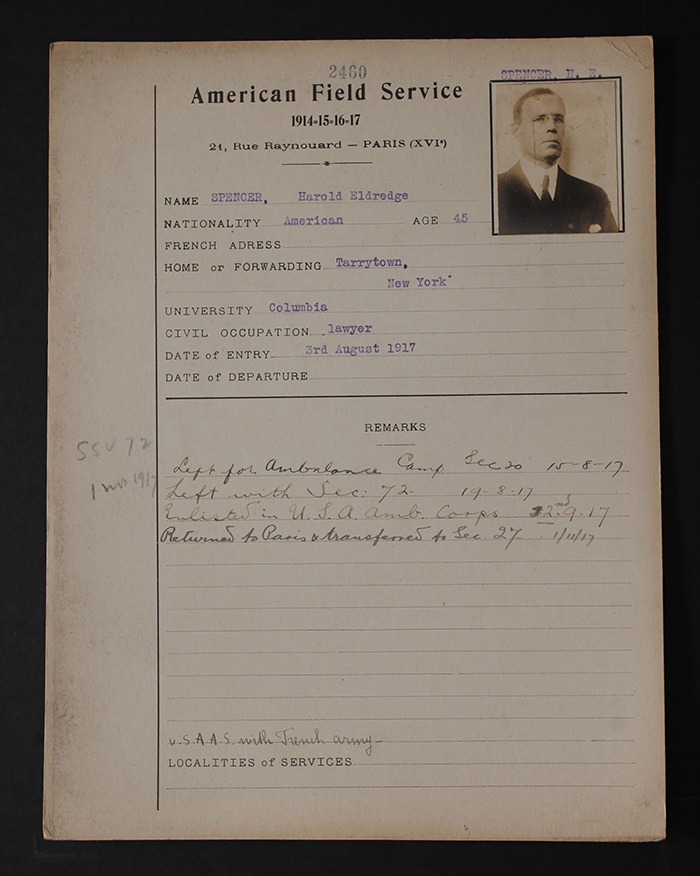 2460
SPENCER, H. E.
American Field Service
1914-15-16-17
21, Rue Raynouard — PARIS (XVIe)
NAME SPENCER, Harold Eldredge
NATIONALITY American AGE 45
FRENCH ADRESS
HOME or FORWARDING Tarrytown,
New York
UNIVERSITY Columbia
CIVIL OCCUPATION lawyer
DATE of ENTRY 3rd August 1917
DATE of DEPARTURE
REMARKS
SSU 72
1 Nov 1917
Left for Ambulance Camp Sec 20 15-8-17
Left with Sec: 72 19-8-17
Enlisted in U.S.A. Amb. Corps 22nd.9.17
Returned to Paris & transferred to Sec. 27 1/11/17
U.S.A.A.S. with French army
LOCALITIES of SERVICES